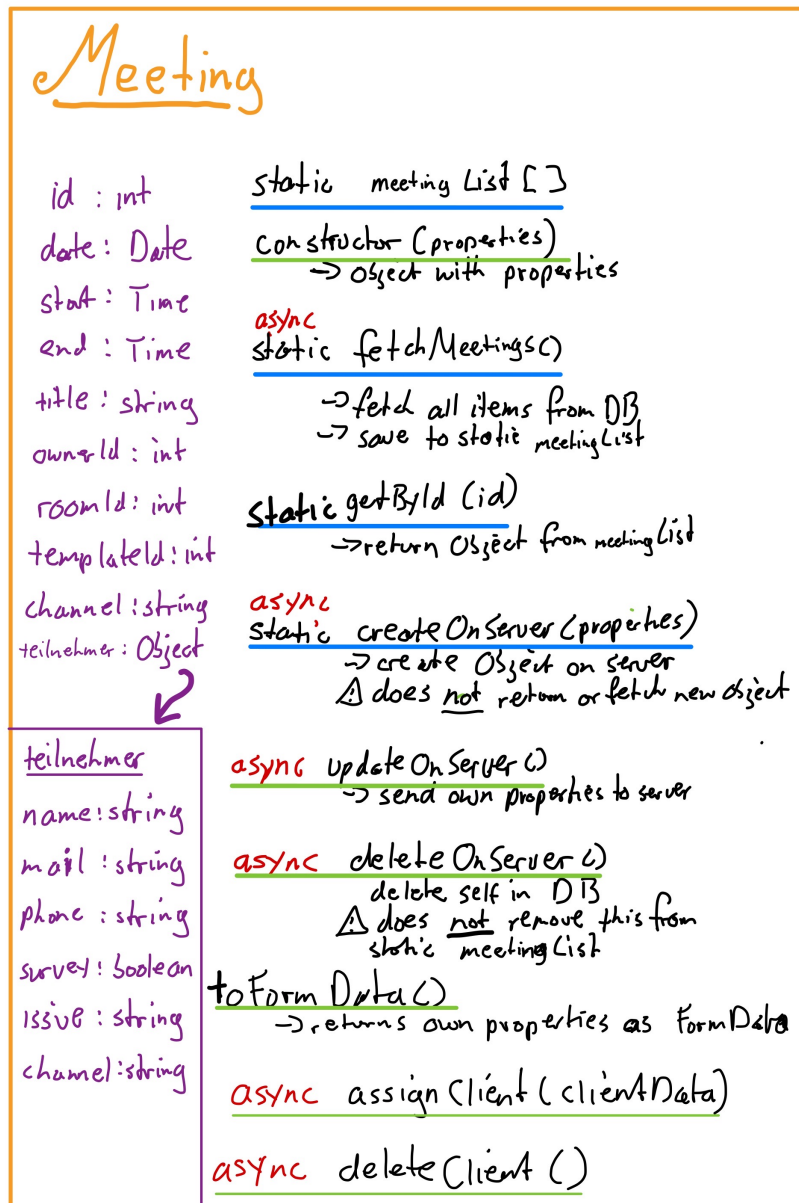 Meeting
id : int
date : Date
start : Time
end : Time
title : string
ownerId : int
roomId : int
templateId : int
channel : string
teilnehmer : Object
teilnehmer
name : string
mail : string
phone : string
survey : boolean
issue : string
channel : string
static meetingList []
constructor (properties)
-> Object with properties
async
static fetchMeetings()
-> fetch all items from DB
-> save to static meetingList
static getById (id)
-> return Object from meetingList
async
static createOnServer (properties)
-> create Object on server
⚠ does not return or fetch new object
async updateOnServer ()
-> send own properties to server
async deleteOnServer ()
delete self in DB
⚠ does not remove this from
static meetingList
toFormData ()
-> returns own properties as FormData
async assignClient (clientData)
async deleteClient ()